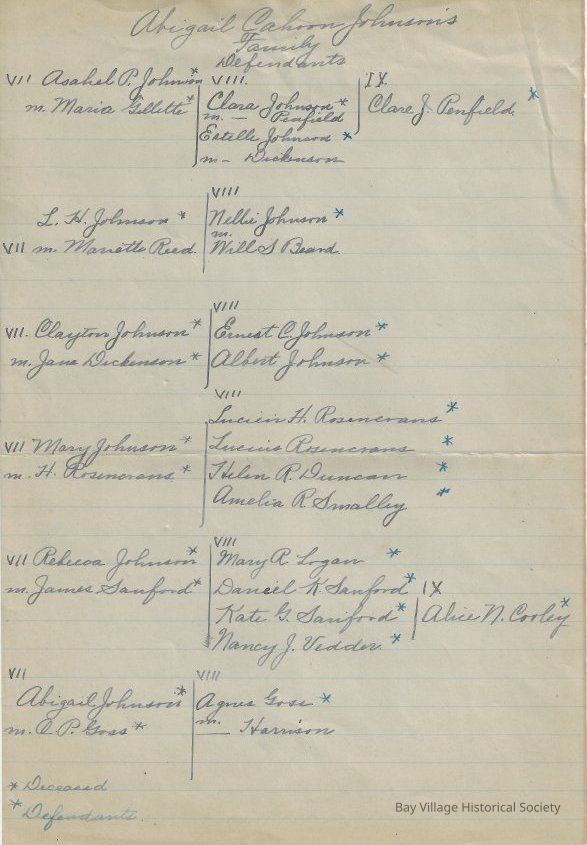 Abigail Cahoon Johnson's
Family
Defendants
VII Asahel P. Johnson
m. Maria Gillette *
VIII.
Clara Johnson *
m. — Penfield
Estelle Johnson *
m — Dickenson
IX
Clare J. Penfield. *
L. H. Johnson *
VII m. Mariette Reed.
VIII
Nellie Johnson *
m.
Will S Beard.
VII. Clayton Johnson *
m. Jane Dickenson *
VIII
Ernest C. Johnson *
Albert Johnson *
VII Mary Johnson *
m H. Rosencrans. *
VIII
Lucien H. Rosencrans *
Lucius Rosencrans *
Helen R. Duncan *
Amelia R. Smalley *
VII Rebecca Johnson *
m. James Sanford *
VIII
Mary R. Logan *
Daniel K. Sanford *
Kate G. Sanford *
Nancy J. Vedder. *
IX
Alice N. Cooley *
VII
Abigail Johnson *
m. O P. Goss *
VIII
Agnes Goss *
m.
— Harrison
* Deceased
* Defendants.
Bay Village Historical Society